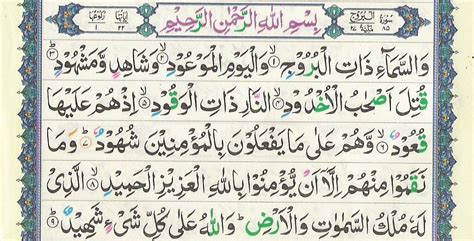 سُوْرَةُ الْبُرُوْجِ ٨٥ بِسْمِ اللهِ الرَّحْمٰنِ الرَّحِيْمِ ٢٢ ١
وَالسَّمَآءِ ذَاتِ الْبُرُوْجِ ۙ﴿۱﴾ وَالْيَوْمِ الْمَوْعُوْدِ ۙ﴿۲﴾ وَشَاهِدٍ وَّمَشْهُوْدٍ ؕ﴿۳﴾
قُتِلَ اَصْحٰبُ الْاُخْدُوْدِ ۙ﴿۴﴾ النَّارِ ذَاتِ الْوَقُوْدِ ۙ﴿۵﴾ اِذْ هُمْ عَلَيْهَا
قُعُوْدٌ ۙ﴿۶﴾ وَّهُمْ عَلٰى مَا يَفْعَلُوْنَ بِالْمُؤْمِنِيْنَ شُهُوْدٌ ؕ﴿۷﴾ وَمَا
نَقَمُوْا مِنْهُمْ اِلَّاۤ اَنْ يُّؤْمِنُوْا بِاللهِ الْعَزِيْزِ الْحَمِيْدِ ۙ﴿۸﴾ الَّذِيْ
لَهٗ مُلْكُ السَّمٰوٰتِ وَالْاَرْضِ ؕ وَاللهُ عَلٰى كُلِّ شَيْءٍ شَهِيْدٌ ؕ﴿۹﴾